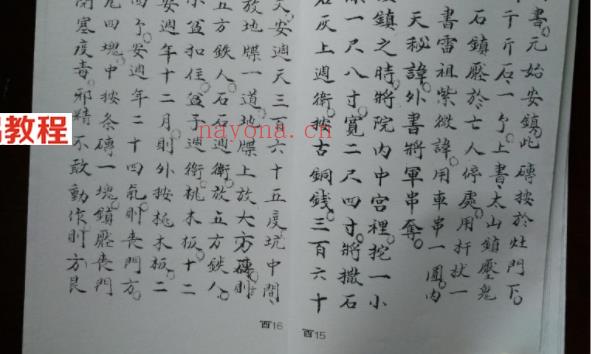 書。元始安鎮。此磚按於灶門下。
千斤石一个。上書太山鎮壓鬼
石鎮壓於亡人停處。用扞狀一
書雷祖紫微諱。用車串一圈。內
天秘諱。外書將軍串奪。
鎮之時。將院內中宮裡挖一小
一尺八寸。寬二尺四寸。將撒石
石灰上週衛按古銅錢三百六十
天。安週天三百六十五度。坑中間、
放地牒一道。地牒上放大方磚。則
五方鉄人。石石週衛放五方鉄人。
小盆扣住。盆子週衛桃木板。十二
安週年十二月。則外按桃木板。二
四个。安週年二十四氣。則喪門方。
四塊。中按条磚一塊。鎮壓喪門
閉塞疫毒。邪精不敢動作。則方艮
酉16
酉15
易教程
nayona.cn